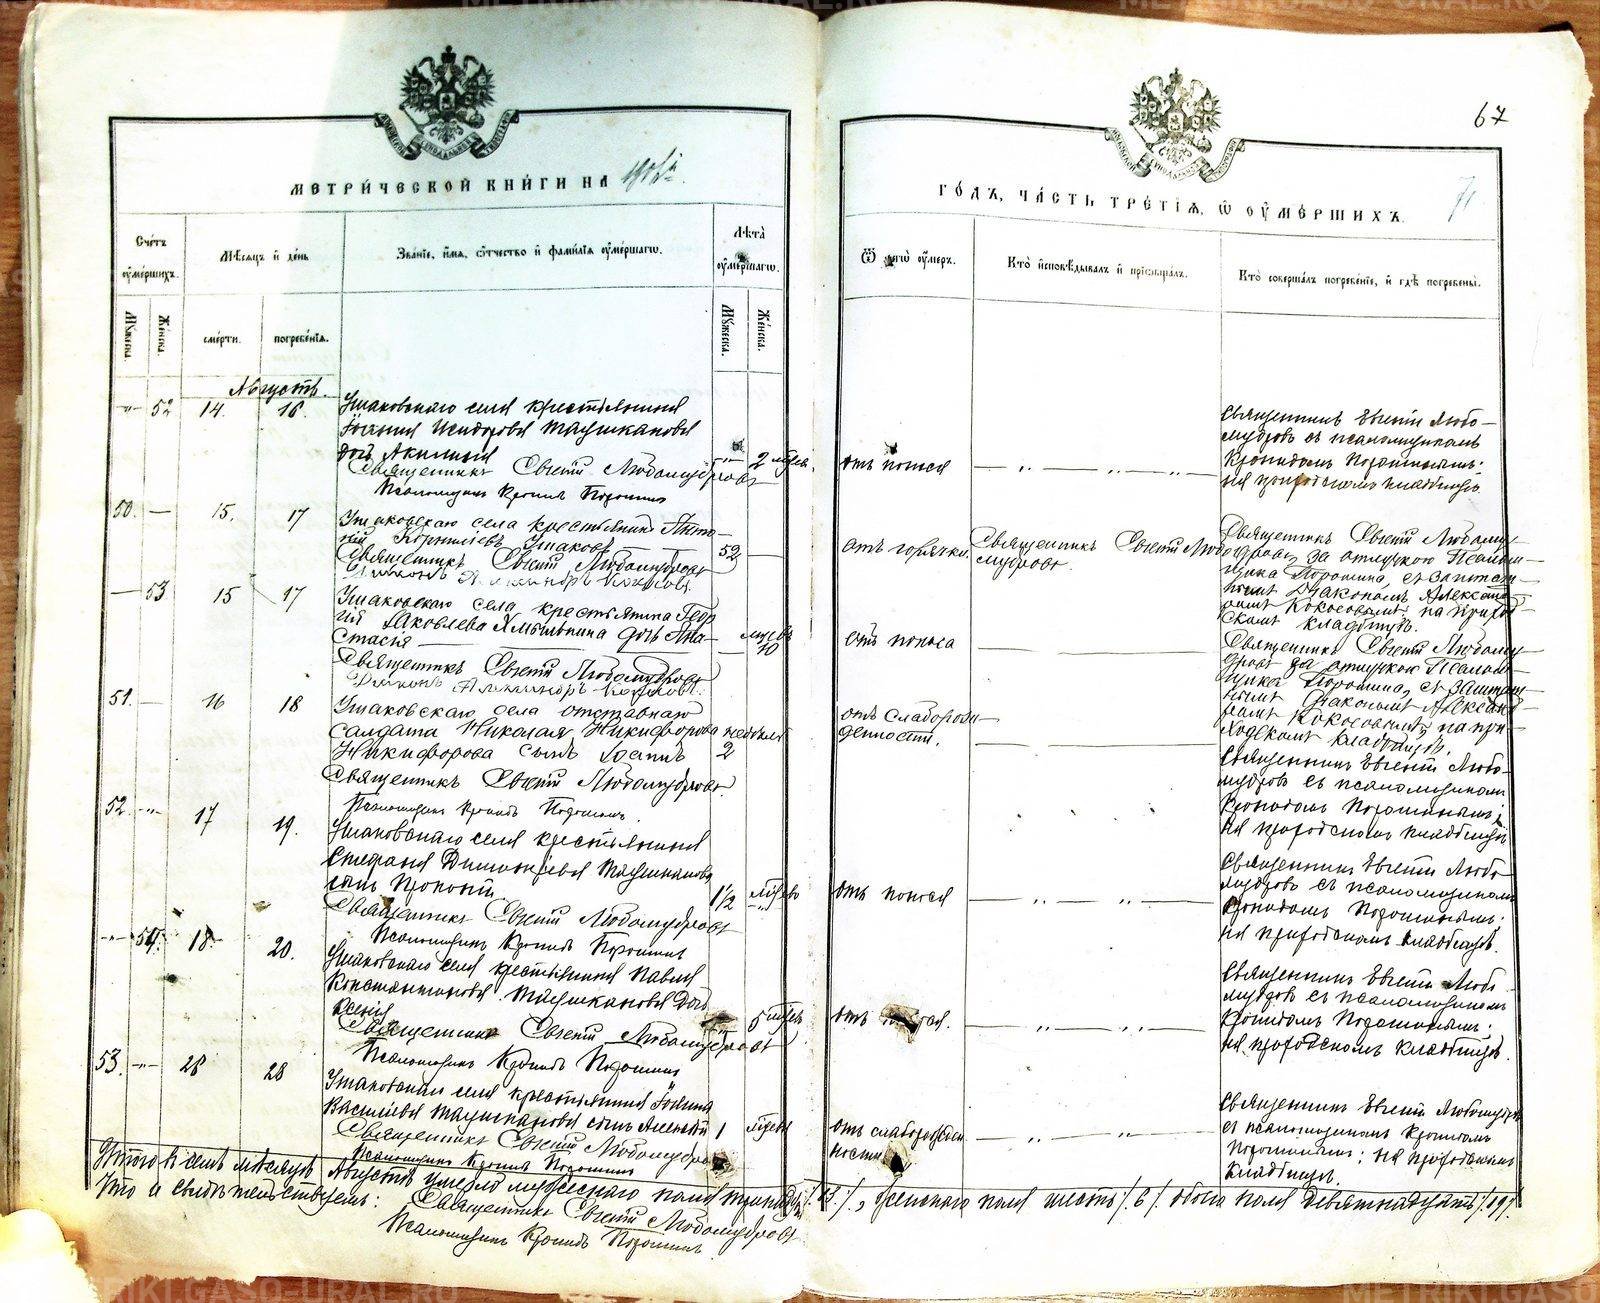 METRIKI.GASO-URAL.RU
67
71
МЕТРИ́ЧЕСКОЙ КНИ́ГИ НА
ГО́ДЪ, ЧА́СТЬ ТРЕ́ТІЯ, Ѽ ОУ҆МЕ́РШИХЪ.
Сче́тъ оу҆ме́ршихъ.
Мѣ́сяцъ и҆ де́нь
Зва́нїе, и҆́мѧ, ѻ҆́тчество и҆ фами́лїѧ оу҆ме́ршагѡ.
Лѣ̑та̀ оу҆ме́ршагѡ.
Ѿ чегѡ̀ оу҆́меръ.
Кто̀ и҆сповѣ́дывалъ и҆ прїѡбща́лъ.
Кто̀ соверша́лъ погребе́нїе, и҆ гдѣ̀ погребены̀.
Му́жеска.
Же́нска.
сме́рти.
погребе́нїѧ.
Му́жеска.
Же́нска.
Августъ.
52 14. 16. Ушаковскаго села крестьянина
Исидорова Таушканова
дочь Акилина 2 отъ поноса
Священникъ Евгеній Любомудровъ
Псаломщикъ Кронидъ Порошинъ
Священникъ Евгеній Любо-
мудровъ съ псаломщикомъ
Кронидомъ Порошинымъ;
на приходскомъ кладбищѣ.
50. — 15. 17 Ушаковскаго села крестьянинъ
Корниліевъ Ушаковъ 52 —
отъ горячки. Священникъ Евгеній Любо-
мудровъ.
Священникъ Евгеній Любомудровъ
Діаконъ Александръ Кокосовъ.
Священникъ Евгеній Любому-
дровъ, за отлучкою Псалом-
щика Порошина, съ заштат-
нымъ Діакономъ Алексан-
дромъ Кокосовымъ, на приход-
скомъ кладбищѣ.
— 53 15 17 Ушаковскаго села крестьянина Геор-
гія Яковлева дочь Ана-
стасія 10 отъ поноса
Священникъ Евгеній Любомудровъ
Діаконъ Александръ Кокосовъ.
Священникъ Евгеній Любому-
дровъ за отлучкою Псалом-
щика Порошина, съ заштат-
нымъ Діакономъ Алексан-
дромъ Кокосовымъ, на при-
ходскомъ кладбищѣ.
51. — 16 18 Ушаковскаго села отставнаго
солдата Николая Никифорова
Никифорова сынъ 2
отъ слаборож-
денности.
Священникъ Евгеній Любомудровъ.
Псаломщикъ Кронидъ Порошинъ.
Священникъ Евгеній Любо-
мудровъ съ псаломщикомъ
Кронидомъ Порошинымъ;
на приходскомъ кладбищѣ
52. 17 19. Ушаковскаго села крестьянина
Стефана Таушканова
сынъ 1½ отъ поноса
Священникъ Евгеній Любомудровъ
Псаломщикъ Кронидъ Порошинъ
Священникъ Евгеній Любо-
мудровъ съ псаломщикомъ
Кронидомъ Порошинымъ;
на приходскомъ кладбищѣ.
54. 18. 20. Ушаковскаго села крестьянина Павла
Константинова Таушканова дочь
Ксенія 5 отъ
Священникъ Евгеній Любомудровъ
Псаломщикъ Кронидъ Порошинъ
Священникъ Евгеній Любо-
мудровъ съ псаломщикомъ
Кронидомъ Порошинымъ;
на приходскомъ кладбищѣ.
53. 28 Ушаковскаго села крестьянина
Васильева Таушканова сынъ Алексѣй 1
Священникъ Евгеній Любомудровъ
Псаломщикъ Кронидъ Порошинъ
Священникъ Евгеній Любомудровъ
съ псаломщикомъ Кронидомъ
Порошинымъ; на приходскомъ
кладбищѣ.
Итого въ семъ мѣсяцѣ Августѣ умерло мужескаго пола тринадцать /13/, женскаго пола шесть /6/. обоего пола девятнадцать /19/.
Что и свидѣтельствуемъ: Священникъ Евгеній Любомудровъ
Псаломщикъ Кронидъ Порошинъ.